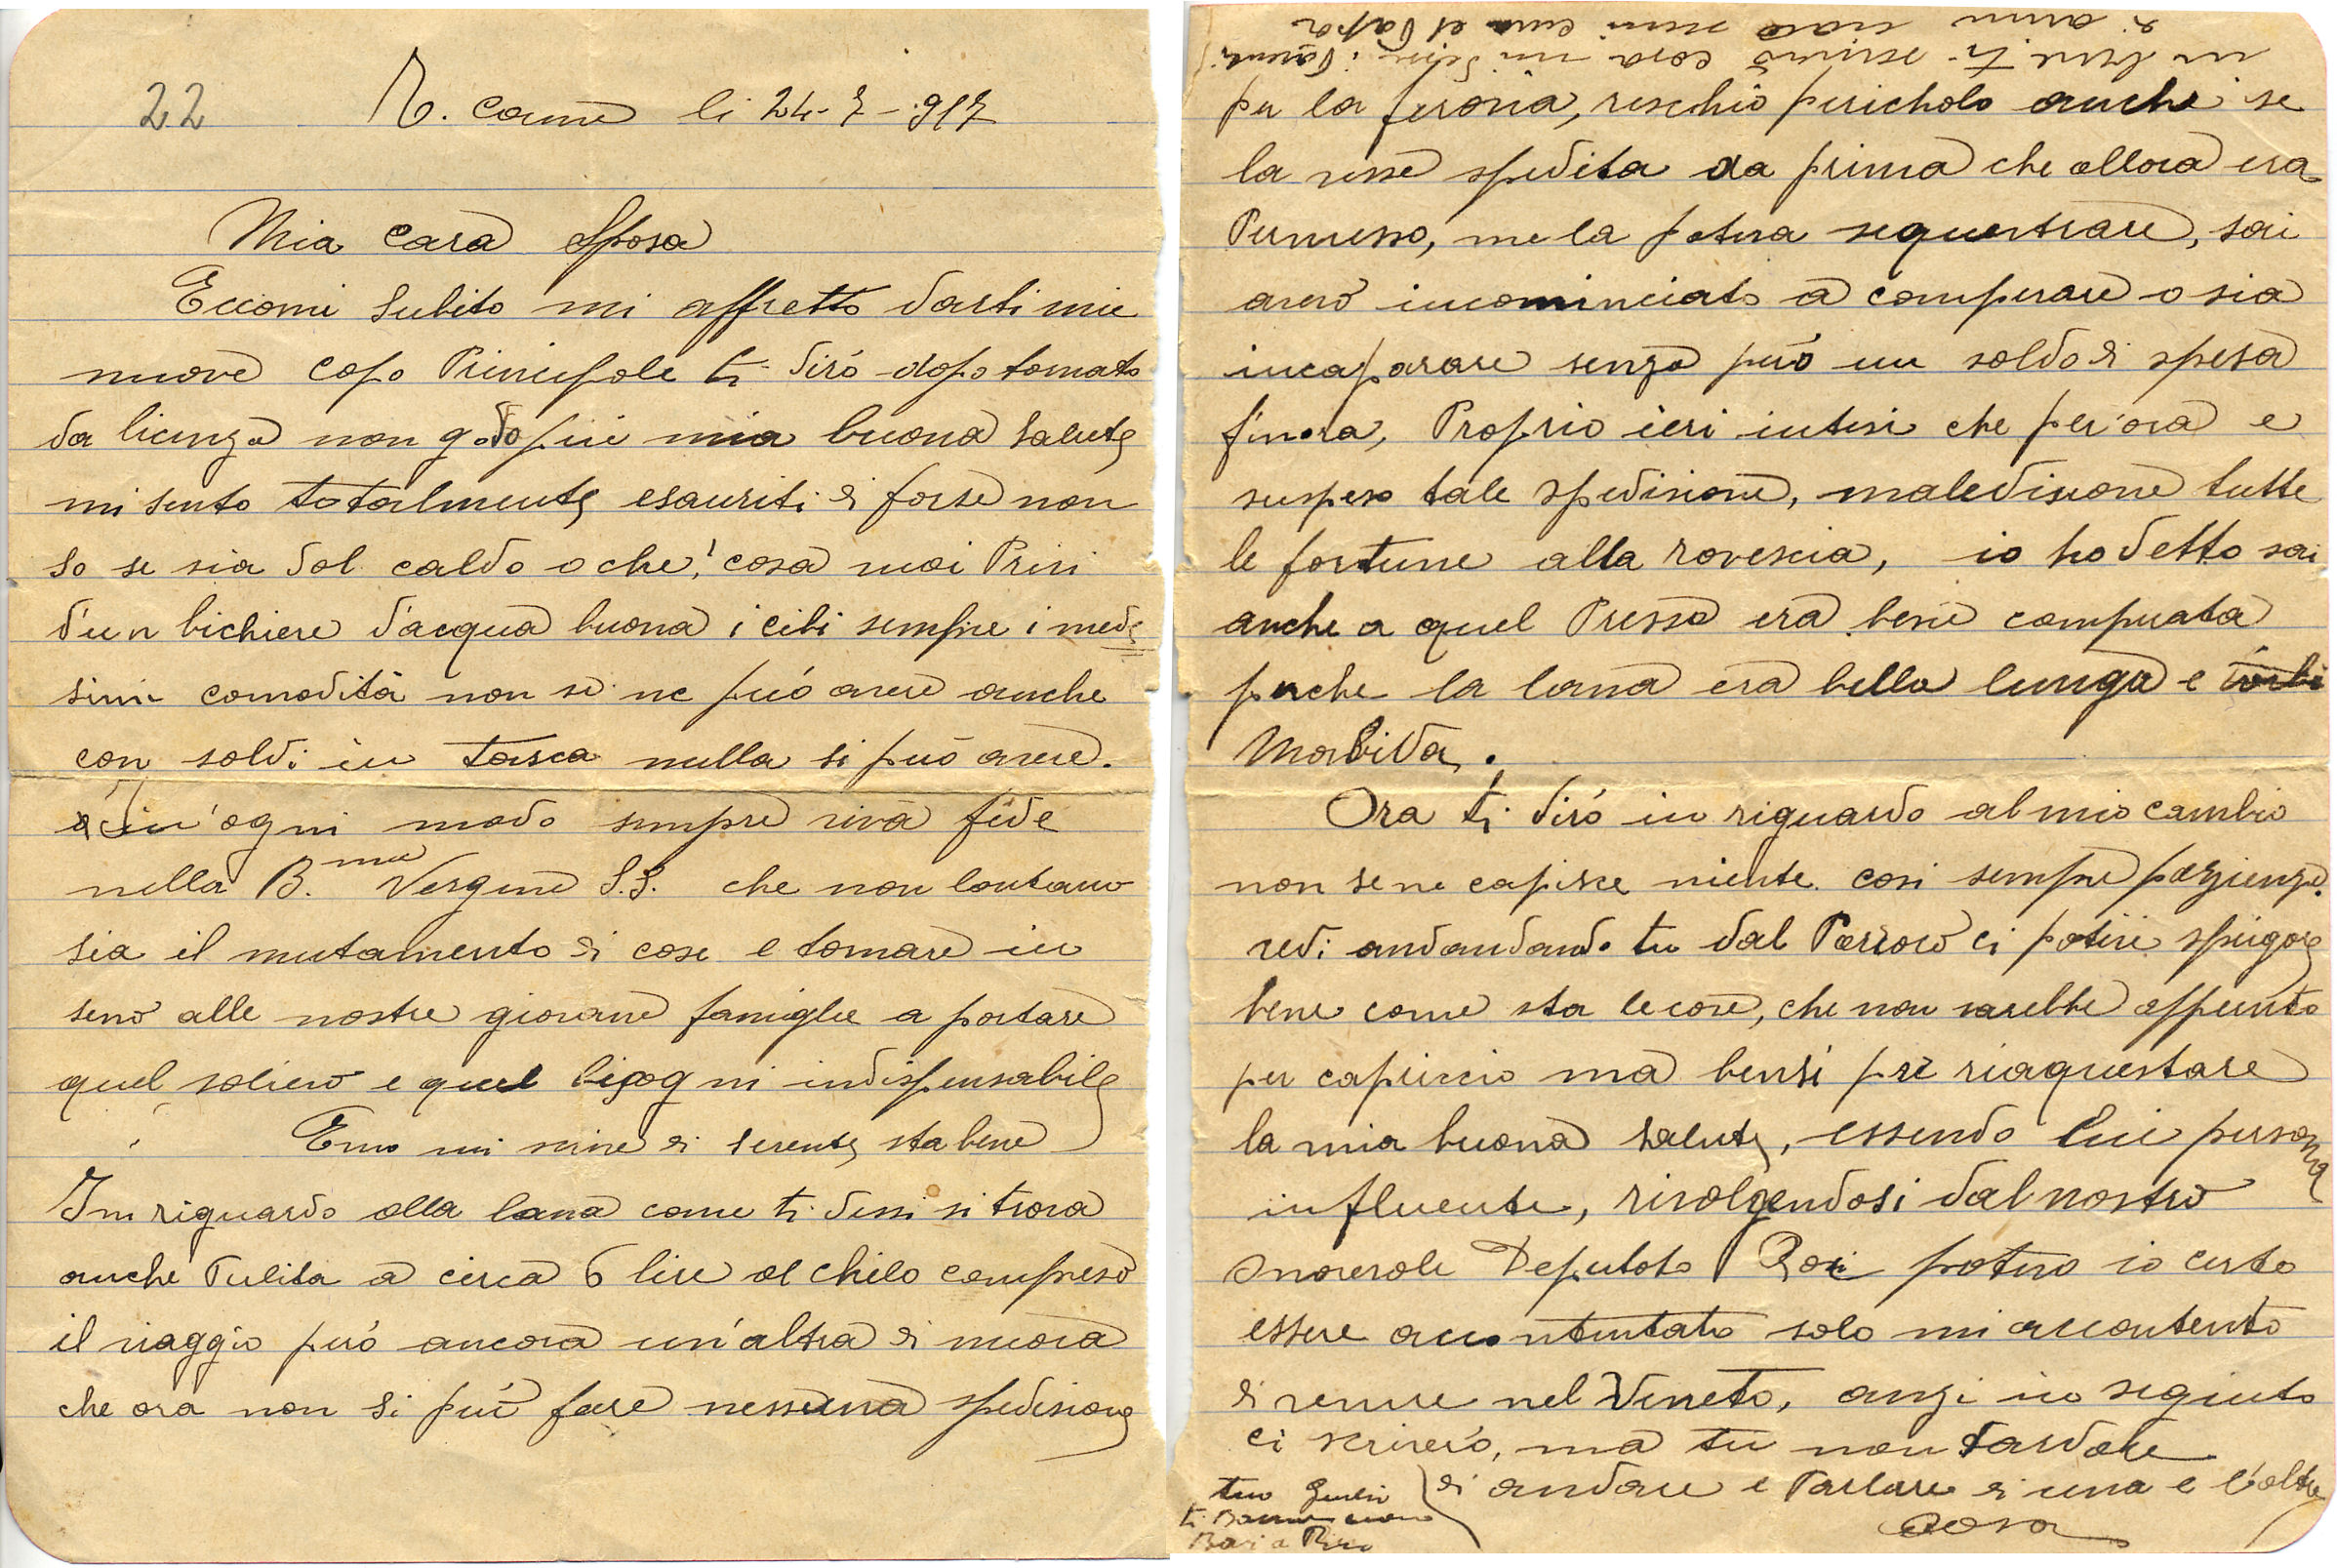 22 Z. Carnia li 24-7-917
Mia Cara Sposa
Eccomi subito mi affretto darti mie
nuove capo Principale ti dirò dopo tornato
da licenza non godo più mia buona salute
mi sento totalmente esauriti di forse non
so se sia dal caldo o che! cosa vuoi Privi
d'un bichiere d'acqua buona i cibi sempre i mede
simi comodità non se ne può avere anche
con soldi in tasca nulla si può avere.
in ogni modo sempre viva fede
nella B.ma Vergine S.S. che non lontano
sia il mutamento di cose e tornare in
seno alle nostre giovane famiglie a portare
quel solievo e quel bisogni indispensabile
Erno mi scrive di serente sta bene
In riguardo alla lana come ti dissi si trova
anche Pulita a circa 6 lire al chilo compreso
il viaggio però ancora un'altra di nuova
che ora non si può fare nessuna spedisione
in bene ti scrivo cosa mi disse i Parenti
di anni
per la ferovia, reschio pericholo anche se
la vesse spedita da prima che allora era
Permesso, me la poteva sequestrare, sai
avevo incominciato a comperare o sia
incaparare senza però un soldo di spesa
finora, Proprio ieri intesi che per ora e
suspeso tale spedisione, maledisione tutte
le fortune alla rovescia, io ho detto sai
anche a quel Presso era bene comprata
perche la lana era bella lunga e
Morbida.
Ora ti dirò in riguardo al mio cambio
non se ne capisce niente cosi sempre pazienza.
vedi andandando tu dal Parroco ci potevi spiegare
bene come sta le cose, che non sarebbe appunto
per capriccio ma bensi per riaquestare
la mia buona salute, essendo lui persona
influente, rivolgendosi dal nostro
Onorevole Deputato Roi potevo io certo
essere accontentato solo mi accontento
di venire nel Veneto, anzi in seguito
ci scriverò, ma tu non tardare
di andare e Parlare di una e l'oltra
cosa
tuo Giulio
ti
Baci a